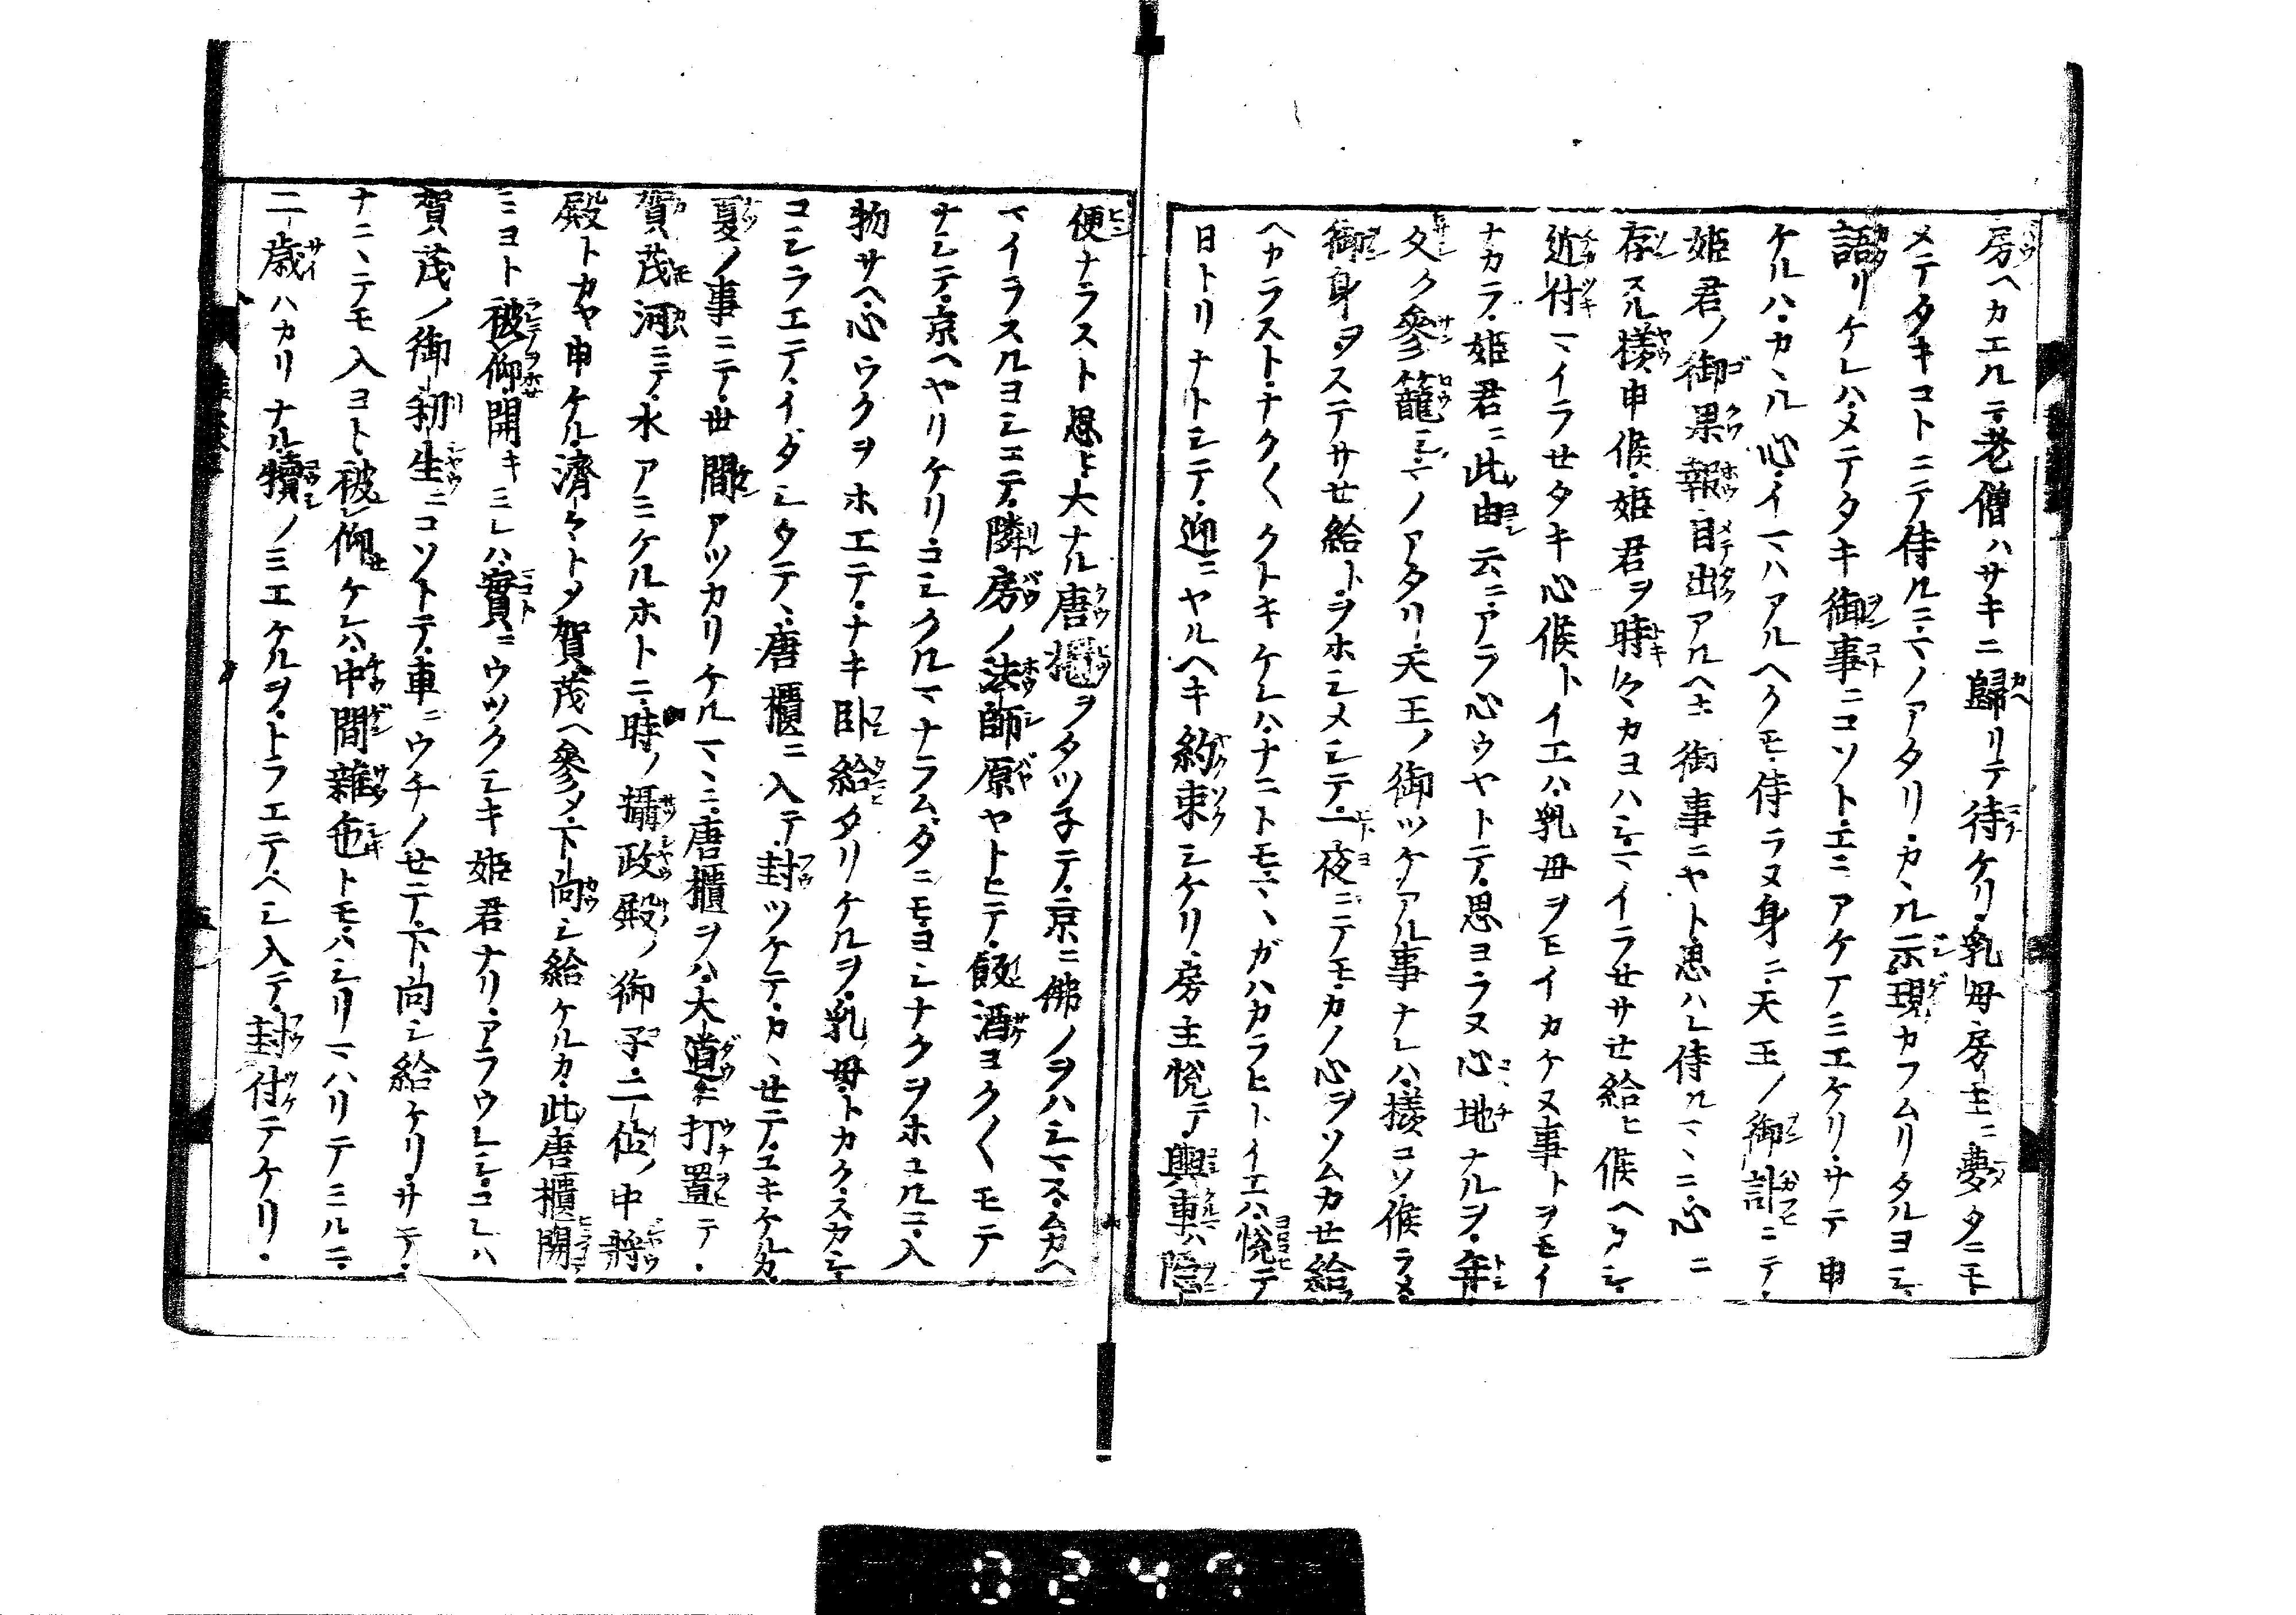 房ヘカエルニ老僧ハサキニ歸リテ待ケリ乳母房主ニ夢タニモ
メテタキコトニテ侍ルニマノアタリカヽル示現カフムリタルヨシ
語リケレハメテタキ御事ニコソトエミアケアミエケリサテ申
ケルハカヽル心イマハアルヘクモ侍ラヌ身ニ天王ノ御計ニテ
姫君ノ御果報目出アルヘキ御事ニヤト思ハレ侍ルマヽニ心ニ
存スル樣申候姫君ヲ時々カヨハシマイラセサセ給ヒ候ヘタシ
近付マイラセタキ心候トイエハ乳母ヲモイカケヌ事トヲモイ
ナカラ姫君ニ此由云ニアラ心ウヤトテ思ヨラヌ心地ナルヲ年
久ク參籠シマノアタリ天王ノ御ツケアル事ナレハ樣コソ候ラメ
御身ヲステサセ給トヲホシメシテ一夜ニテモカノ心ヲソムカセ給
ヘカラストナクナククトキケレハナニトモマヽガハカラヒトイエハ悦テ
日トリナトシテ迎ニヤルヘキ約束シケリ房主悦テ輿車ハ隠
便ナラスト思ヒ大ナル唐櫃ヲタツ子テ京ニ佛ノヲハシマスムカヘ
マイラスルヨシニテ隣房ノ法師原ヤトヒテ飯酒ヨクヨクモテ
ナシテ京ヘヤリケリコシクルマナラムダニモヨシナクヲホユルニ入
物サヘ心ウクヲホエテナキ臥給タリケルヲ乳母トカクスカシ
コシラエテイダシタテヽ唐櫃ニ入テ封ツケテカヽセテユキケルカ
夏ノ事ニテ世間アツカリケルマヽニ唐櫃ヲハ大道ニ打置テ
賀茂河ニテ水アミケルホトニ時ノ攝政殿ノ御子二位ノ中將
殿トカヤ申ケル濟々トメ賀茂ヘ參メ下向シ給ケルカ此唐櫃開
ミヨト被仰開キミレハ實ニウツクシキ姫君ナリアラウレシコレハ
賀茂ノ御利生ニコソトテ車ニウチノセテ下向シ給ケリサテ
ナニヽテモ入ヨト被仰ケレハ中間雜色トモハシリマハリテミルニ
二歳ハカリナル犢ノミエケルヲトラエテヘシ入テ封付テケリ